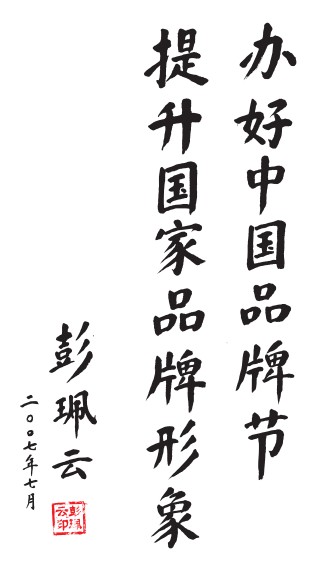 办好中国品牌节
提升国家品牌形象
彭珮云
二〇〇七年七月
彭珮云印